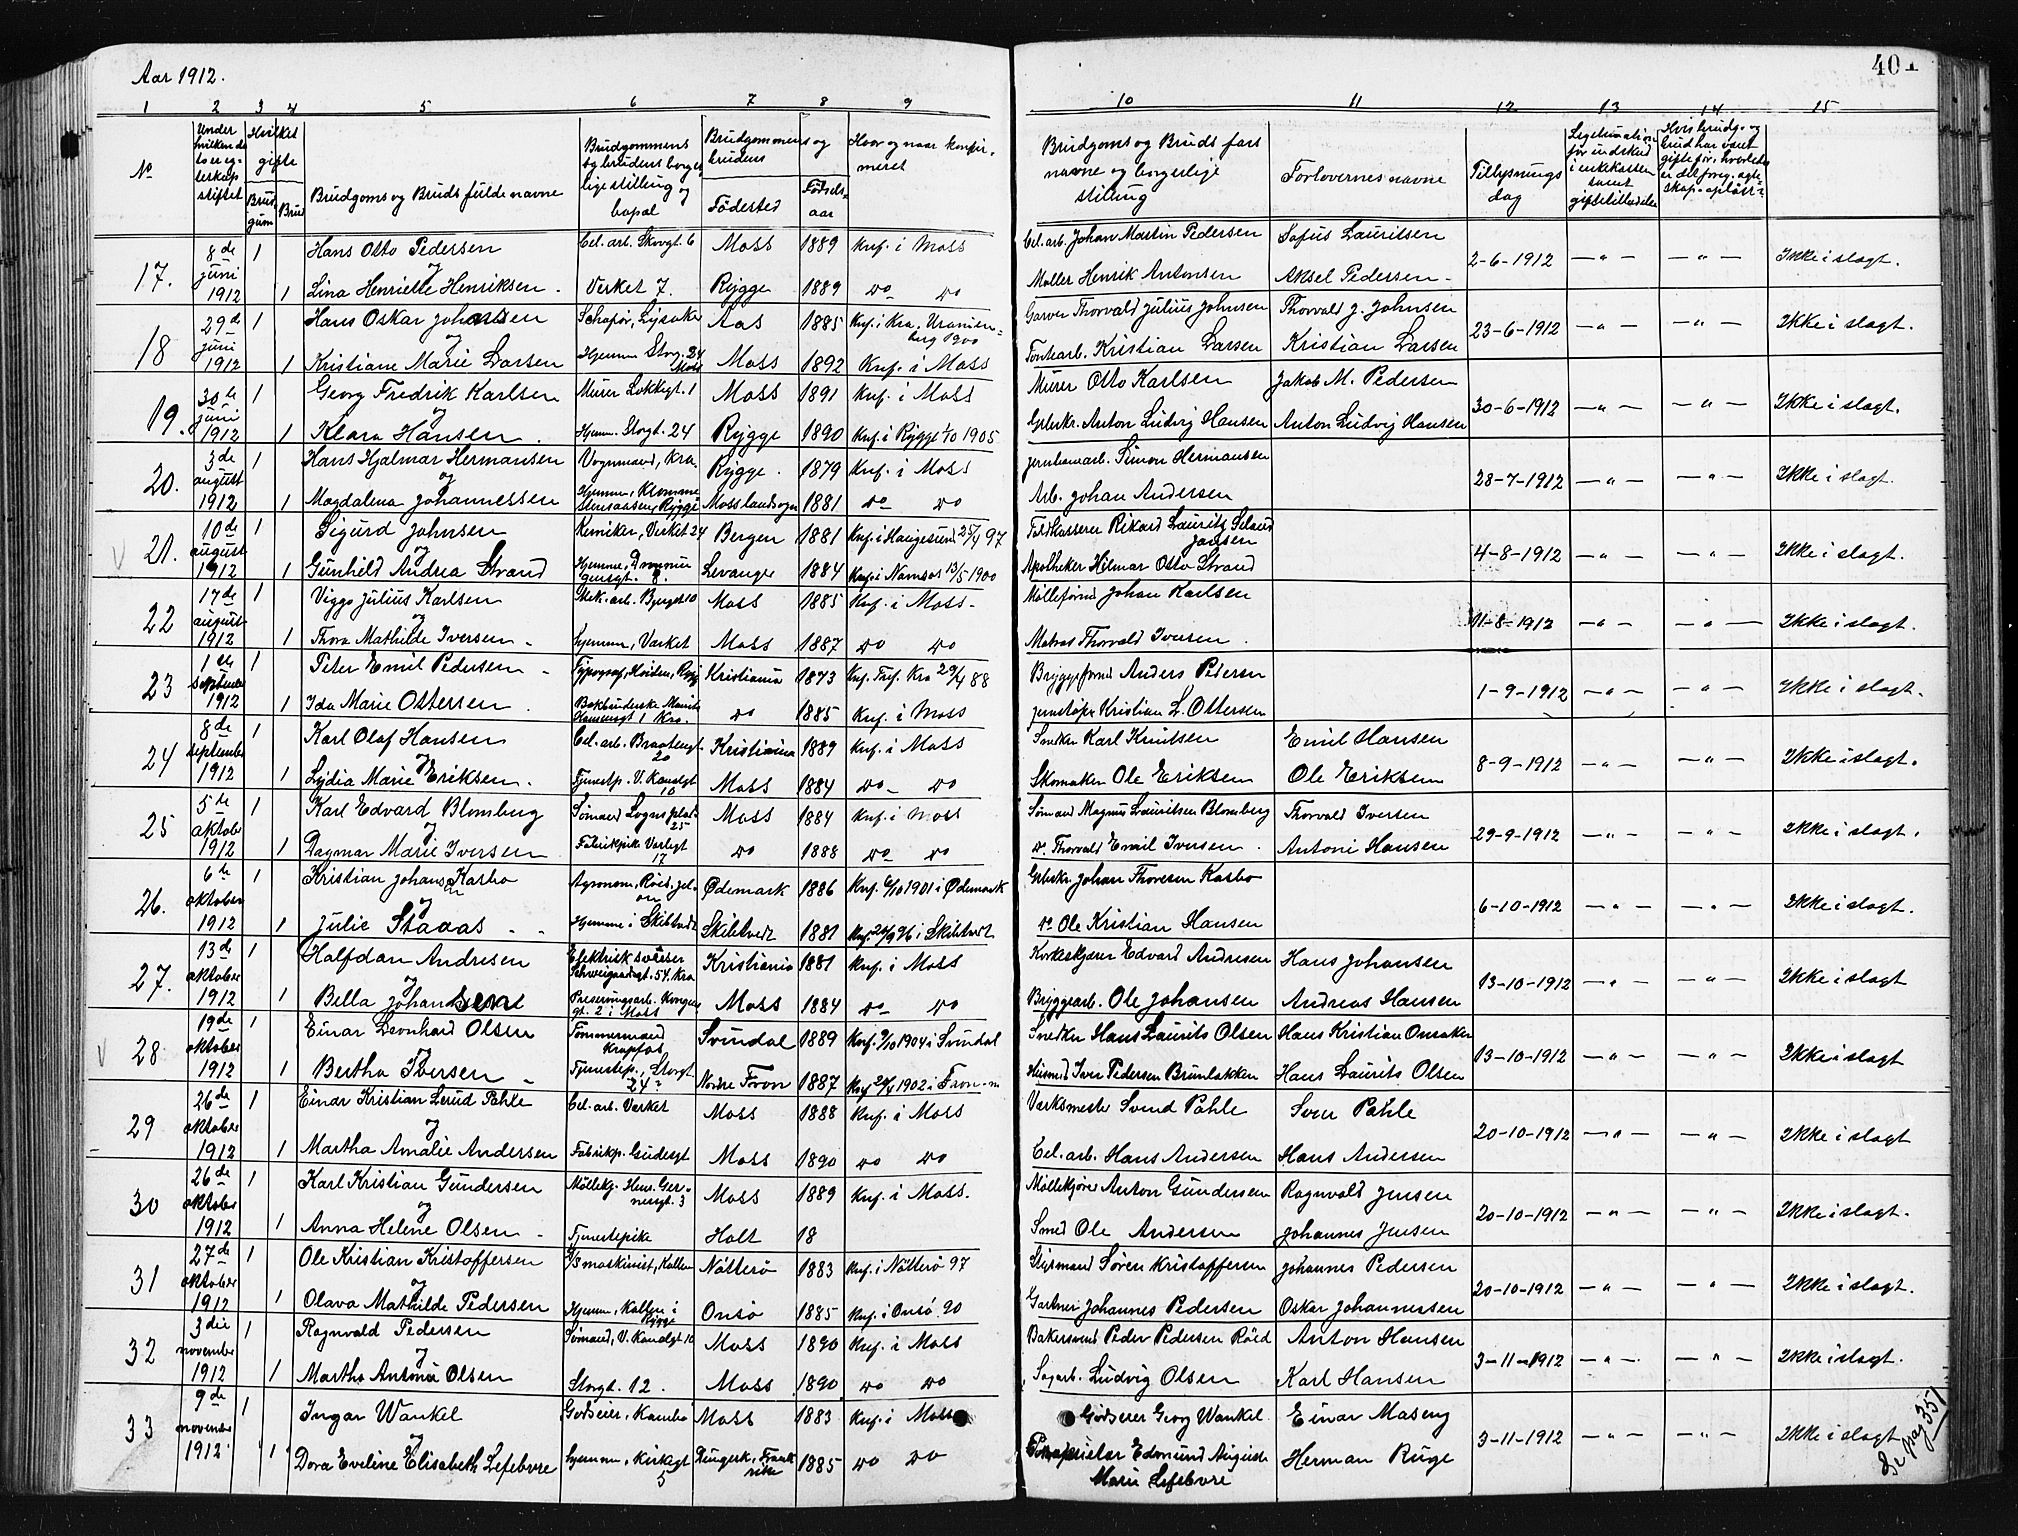 Aar 1912.
401
1 2 3 4 5 6 7 8 9 10 11 12 13 14 15
No
Under hvilken dato er egteskap stiftet
Hvilket gifte
Brudgum
Brud
Brudgoms og Bruds fulde navne
Brudgommens og brudens borgerlige stilling og bopæl
Brudgommens og brudens
Födested
Födselsaar
Hvor og naar konfirmeret
Brudgoms og Bruds fars navne og borgerlige stilling
Forlovernes navne
Tillysnings dag
17. 8de juni 1912 1 Hans Otto Pedersen Cel. arb. Storgt. 6 Moss 1889 Knf. i Moss Cel. arb. Johan Martin Pedersen Sofus Lauritsen 2-6-1912 —„— —„— Ikke i slagt.
og
1 Lina Henriette Henriksen. Verket 7. Rygge 1889 do do Möller Henrik Antonsen Aksel Pedersen
18 29de juni 1912 1 Hans Oskar Johansen Schaför, Lysaker Aas 1885 Knf. i Kra. Uranienborg 1900 Garver Thorvald Julius Johnsen Thorvald J. Johnsen 23-6-1912 —„— —„— Ikke i slagt.
og
1 Kristiane Marie Larsen Hjemme Storg. 24 Moss Moss 1892 Knf. i Moss Kristian Larsen Kristian Larsen
19. 30te juni 1912 1 Georg Fredrik Karlsen Murer Lokkegt. 1 Moss 1891 Knf. i Moss Murer Otto Karlsen Jakob M. Pedersen 30-6-1912 —„— —„— Ikke i slagt.
og
1 Klara Hansen. Hjemme. Storgt. 24 Rygge 1890 Knf. i Rygge 1/10 1905 Anton Ludvig Hansen Anton Ludvig Hansen
20. 3de august 1912 1 Hans Hjalmar Hermansen Vognmand, Kra. Rygge. 1879 Knf. i Moss Jernbanearb. Simon Hermansen 28-7-1912 —„— —„— Ikke i slagt.
og
1 Magdalena Johannessen Hjemme, Kromme Rygge Moss landsogn 1881 do do Arb. Johan Andersen
21. 10de august 1912 1 Sigurd Johnsen Kemiker, Verket 24 Bergen 1881 Knf. i Haugesund 25/4 97 Rikard Lauritz Jonsen 4-8-1912 —„— —„— Ikke i slagt.
og
1 Gunhild Andrea Strand Hjemme, Dronningensgt. 8. Levanger 1884 Knf. i Namsos 13/5 1900 Apotheker Hilmar Otto Strand
22 17de august 1912 1 Viggo Julius Karlsen Mek. arb. 10 Moss 1885 Knf. i Moss. Johan Karlsen 11-8-1912 —„— —„— Ikke i slagt.
og
1 Thora Mathilde Iversen. Hjemme, Værket Moss 1887 do do Matros Thorvald Iversen.
23 1ste september 1912 1 Peter Emil Pedersen Typograf, Rygge Kristiania 1873 Knf. Kra 29/4 88 Anders Pedersen 1-9-1912 —„— —„— Ikke i slagt.
1 Ida Marie Ottersen. Bokbinderske 1 Kra. do 1885 Knf. i Moss Kristian L. Ottersen
24 8de september 1912 1 Karl Olaf Hansen Cel. arb. Braatengt. 20 Kristiania 1889 Knf. i Moss Snedker Karl Knutsen Emil Hansen 8-9-1912 —„— —„— Ikke i slagt.
og
1 Lydia Marie Eriksen. Tjenestp. V. Kanalgt 10 Moss 1884 do do Skomaker Ole Eriksen Ole Eriksen
25 5te oktober 1912 1 Karl Edvard Blomberg Sömand Logns plads 25 Moss 1884 Knf. i Moss Sömand Magnus Lauritsen Blomberg Thorvald Iversen 29-9-1912 —„— —„— Ikke i slagt.
og
1 Dagmar Marie Iversen Fabrikpike Varlegt 17 do 1888 do do do. Thorvald Emil Iversen. Antoni Hansen
26. 6te oktober 1912 1 Kristian Johansen Kasbo Agronom, Röed, Jelöen Ödemark 1886 Knf. 6/10 1901 i Ödemark Johan Thoresen Kasbo 6-10-1912 —„— —„— Ikke i slagt.
og
1 Julie Staaas Hjemme i Skibtvedt Skibtvedt 1881 i Skibtvedt do Ole Kristian Hansen
27. 13de oktober 1912 1 Halfdan Andresen Elektrisk svæiser Schweigaardsgt. 54. Kra Kristiania 1881 Knf. i Moss Korkeskjærer Edvard Andresen Hans Johansen 13-10-1912 —„— —„— Ikke i slagt
og
1 Bella Johansen Preserveringsarb. Kongensgt. 2 i Moss Moss 1884 do do Bryggearb. Ole Johansen Andreas Hansen
28. 19de oktober 1912 1 Einar Leonhard Olsen Tömmermand Krapfos Svindal 1889 Knf. 9/10 1904 i Svindal Snedker Hans Laurits Olsen Hans Kristian Onsaker 13-10-1912 —„— —„— Ikke i slagt
og
1 Bertha Iversen Tjenestep., Storgt. 24 Nordre Fron 1887 1902 i Fron Husmd. Iver Pedersen Brunlakken Hans Laurits Olsen
29 26de oktober 1912 1 Einar Kristian Lerud Pahle Cel. arb. Verket Moss 1888 Knf. i Moss Værksmester Svend Pahle Sven Pahle 20-10-1912 —„— —„— Ikke i slagt
og
1 Martha Amalie Andersen Fabrikp. Gudesgt Moss 1890 do do Cel. arb. Hans Andersen Hans Andersen
30 26de oktober 1912 1 Karl Kristian Gundersen Möllekj. Hens. Gernersgt. 3 Moss 1889 Knf. i Moss. Möllekjörer Anton Gundersen Ragnvald Jensen 20-10-1912 —„— —„— Ikke i slagt.
og
1 Anna Helene Olsen Tjenestepike Holt 18 Smed Ole Andersen Johannes Jensen
31 27de oktober 1912 1 Ole Kristian Kristoffersen maskinist, Kallum Nötterö 1883 Knf. i Nötterö 97 Styrmand Sören Kristoffersen Johannes Pedersen 20-10-1912 —„— —„— Ikke i slagt.
og
1 Olava Mathilde Pedersen Hjemme, Kallum i Rygge Onsö 1885 Knf. i Onsö. 90 Gartner Johannes Pedersen Oskar Johannessen
32 3die november 1912 1 Ragnvald Pedersen Sömand, V. Kanalgt 10 Moss 1890 Knf. i Moss Bakersvend Peder Pedersen Röed Anton Hansen 3-11-1912 —„— —„— Ikke i slagt.
og
1 Martha Antonie Olsen Storgt. 12. Moss 1890 do do Sagarb. Ludvig Olsen Karl Hansen
33 9de november 1912. 1 Ingar Wankel Godseier, Kambo Moss 1883 Knf. i Moss Godseier Georg Wankel Einar Maseng 3-11-1912 —„— —„— Ikke i slagt
og
1 Dora Eveline Elisabeth Lefebvre Hjemme, Kirkegt 5 Frankrike 1885 do do Edmund Auguste Marie Lefebvre Herman Ruge
Se pag 351